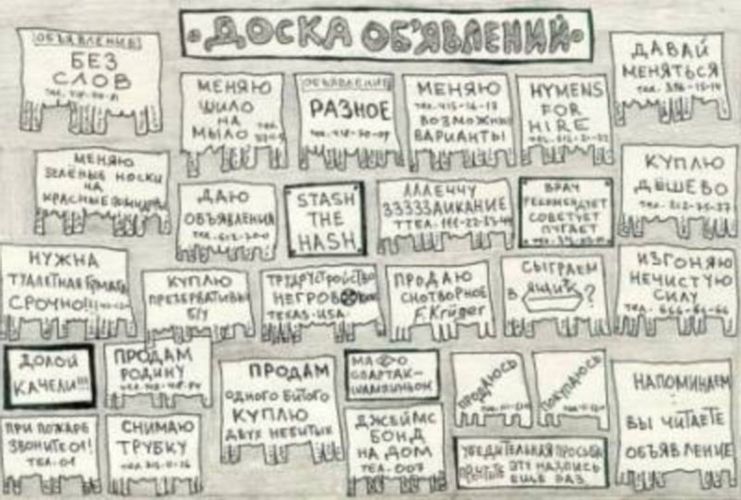 ДОСКА ОБЪЯВЛЕНИЙ
ОБЪЯВЛЕНИЕ
БЕЗ
СЛОВ
МЕНЯЮ
ШИЛО
НА
МЫЛО
ОБЪЯВЛЕНИЕ
РАЗНОЕ
МЕНЯЮ
ТЕЛ.-415-16-13
ВОЗМОЖНЫ
ВАРИАНТЫ
HYMENS
FOR
HIRE
ДАВАЙ
МЕНЯТЬСЯ
МЕНЯЮ
ЗЕЛЁНЫЕ НОСКИ
НА
КРАСНЫЕ
ДАЮ
ОБЪЯВЛЕНИЯ
STASH
THE
HASH
АЛЛЕЧЧУ
ЗЗЗЗЗАИКАНИЕ
ТТЕЛ.-111-22-33-44
ВРАЧ
РЕКОМЕНДУЕТ
СОВЕТУЕТ
ПУГАЕТ
КУПЛЮ
ДЁШЕВО
НУЖНА
ТУАЛЕТНАЯ БУМАГА
СРОЧНО!!!
КУПЛЮ
ПРЕЗЕРВАТИВЫ
Б/У
ТРУДУСТРОЙСТВО
НЕГРОВ
TEXAS-USA
ПРОДАЮ
СНОТВОРНОЕ
F. Krüger
СЫГРАЕМ
В ЯЩИК?
ИЗГОНЯЮ
НЕЧИСТУЮ
СИЛУ
ТЕЛ.-666-66-66
ДОЛОЙ
КАЧЕЛИ!!!
ПРОДАМ
РОДИНУ
ПРОДАМ
ОДНОГО БИТОГО
КУПЛЮ
ДВУХ НЕБИТЫХ
СПАРТАК-
ШАМПИНЬОН
ПРОДАЮСЬ
ПОКУПАЮСЬ
НАПОМИНАЕМ
ВЫ ЧИТАЕТЕ
ОБЪЯВЛЕНИЕ
ПРИ ПОЖАРЕ
ЗВОНИТЕ 01!
ТЕЛ.-01
СНИМАЮ
ТРУБКУ
ДЖЕЙМС
БОНД
НА ДОМ
ТЕЛ-007
УБЕДИТЕЛЬНАЯ ПРОСЬБА
ЭТУ НАДПИСЬ
ЕЩЕ РАЗ.